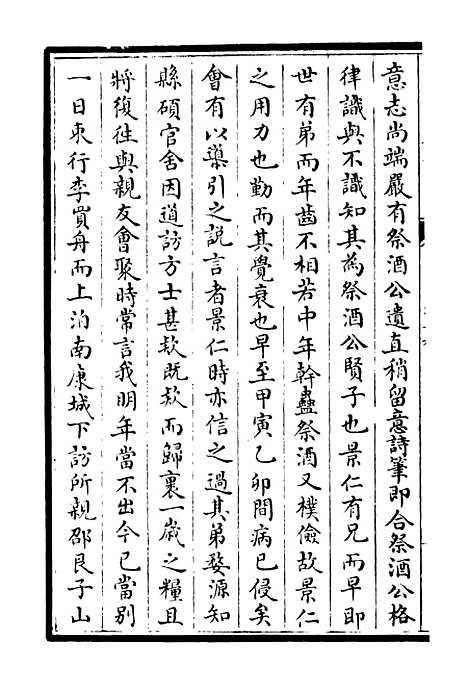 意志尚端嚴有祭酒公遺直稍留意詩筆即合祭酒公格
律識與不識知其為祭酒公賢子也景仁有兄而早即
世有弟而年齒不相若中年幹蠱祭酒又樸儉故景仁
之用力也勤而其覺衰也早至甲寅乙卯間病已侵矣
會有以導引之說言者景仁時亦信之過其弟婺源知
縣碩官舍因道訪方士甚欵既欵而歸裹一歲之糧且
將復徃與親友會聚時常言我明年當不出今已當别
一日束行李買舟而上泊南康城下訪所親邵艮子山